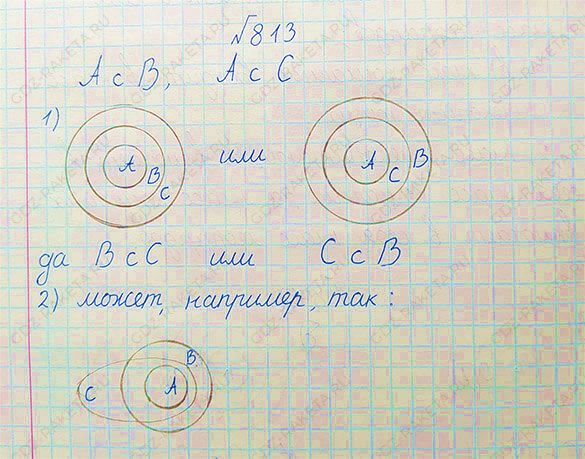 №813
A ⊂ B, A ⊂ C
1)
A B C или A C B
да B ⊂ C или C ⊂ B
2) может, например, так:
C A B
GDZ-RAKETA.RU